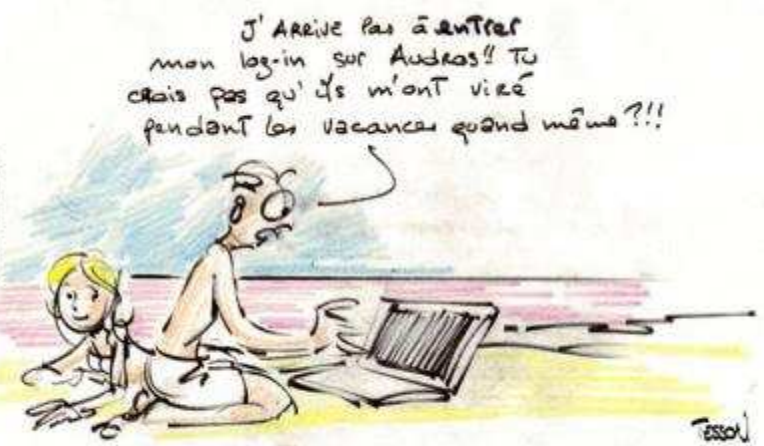 J'ARRIVE Pas à entrer
mon log-in sur Audros!! Tu
crois pas qu'ils m'ont viré
pendant les vacances quand même ?!!
TESSON